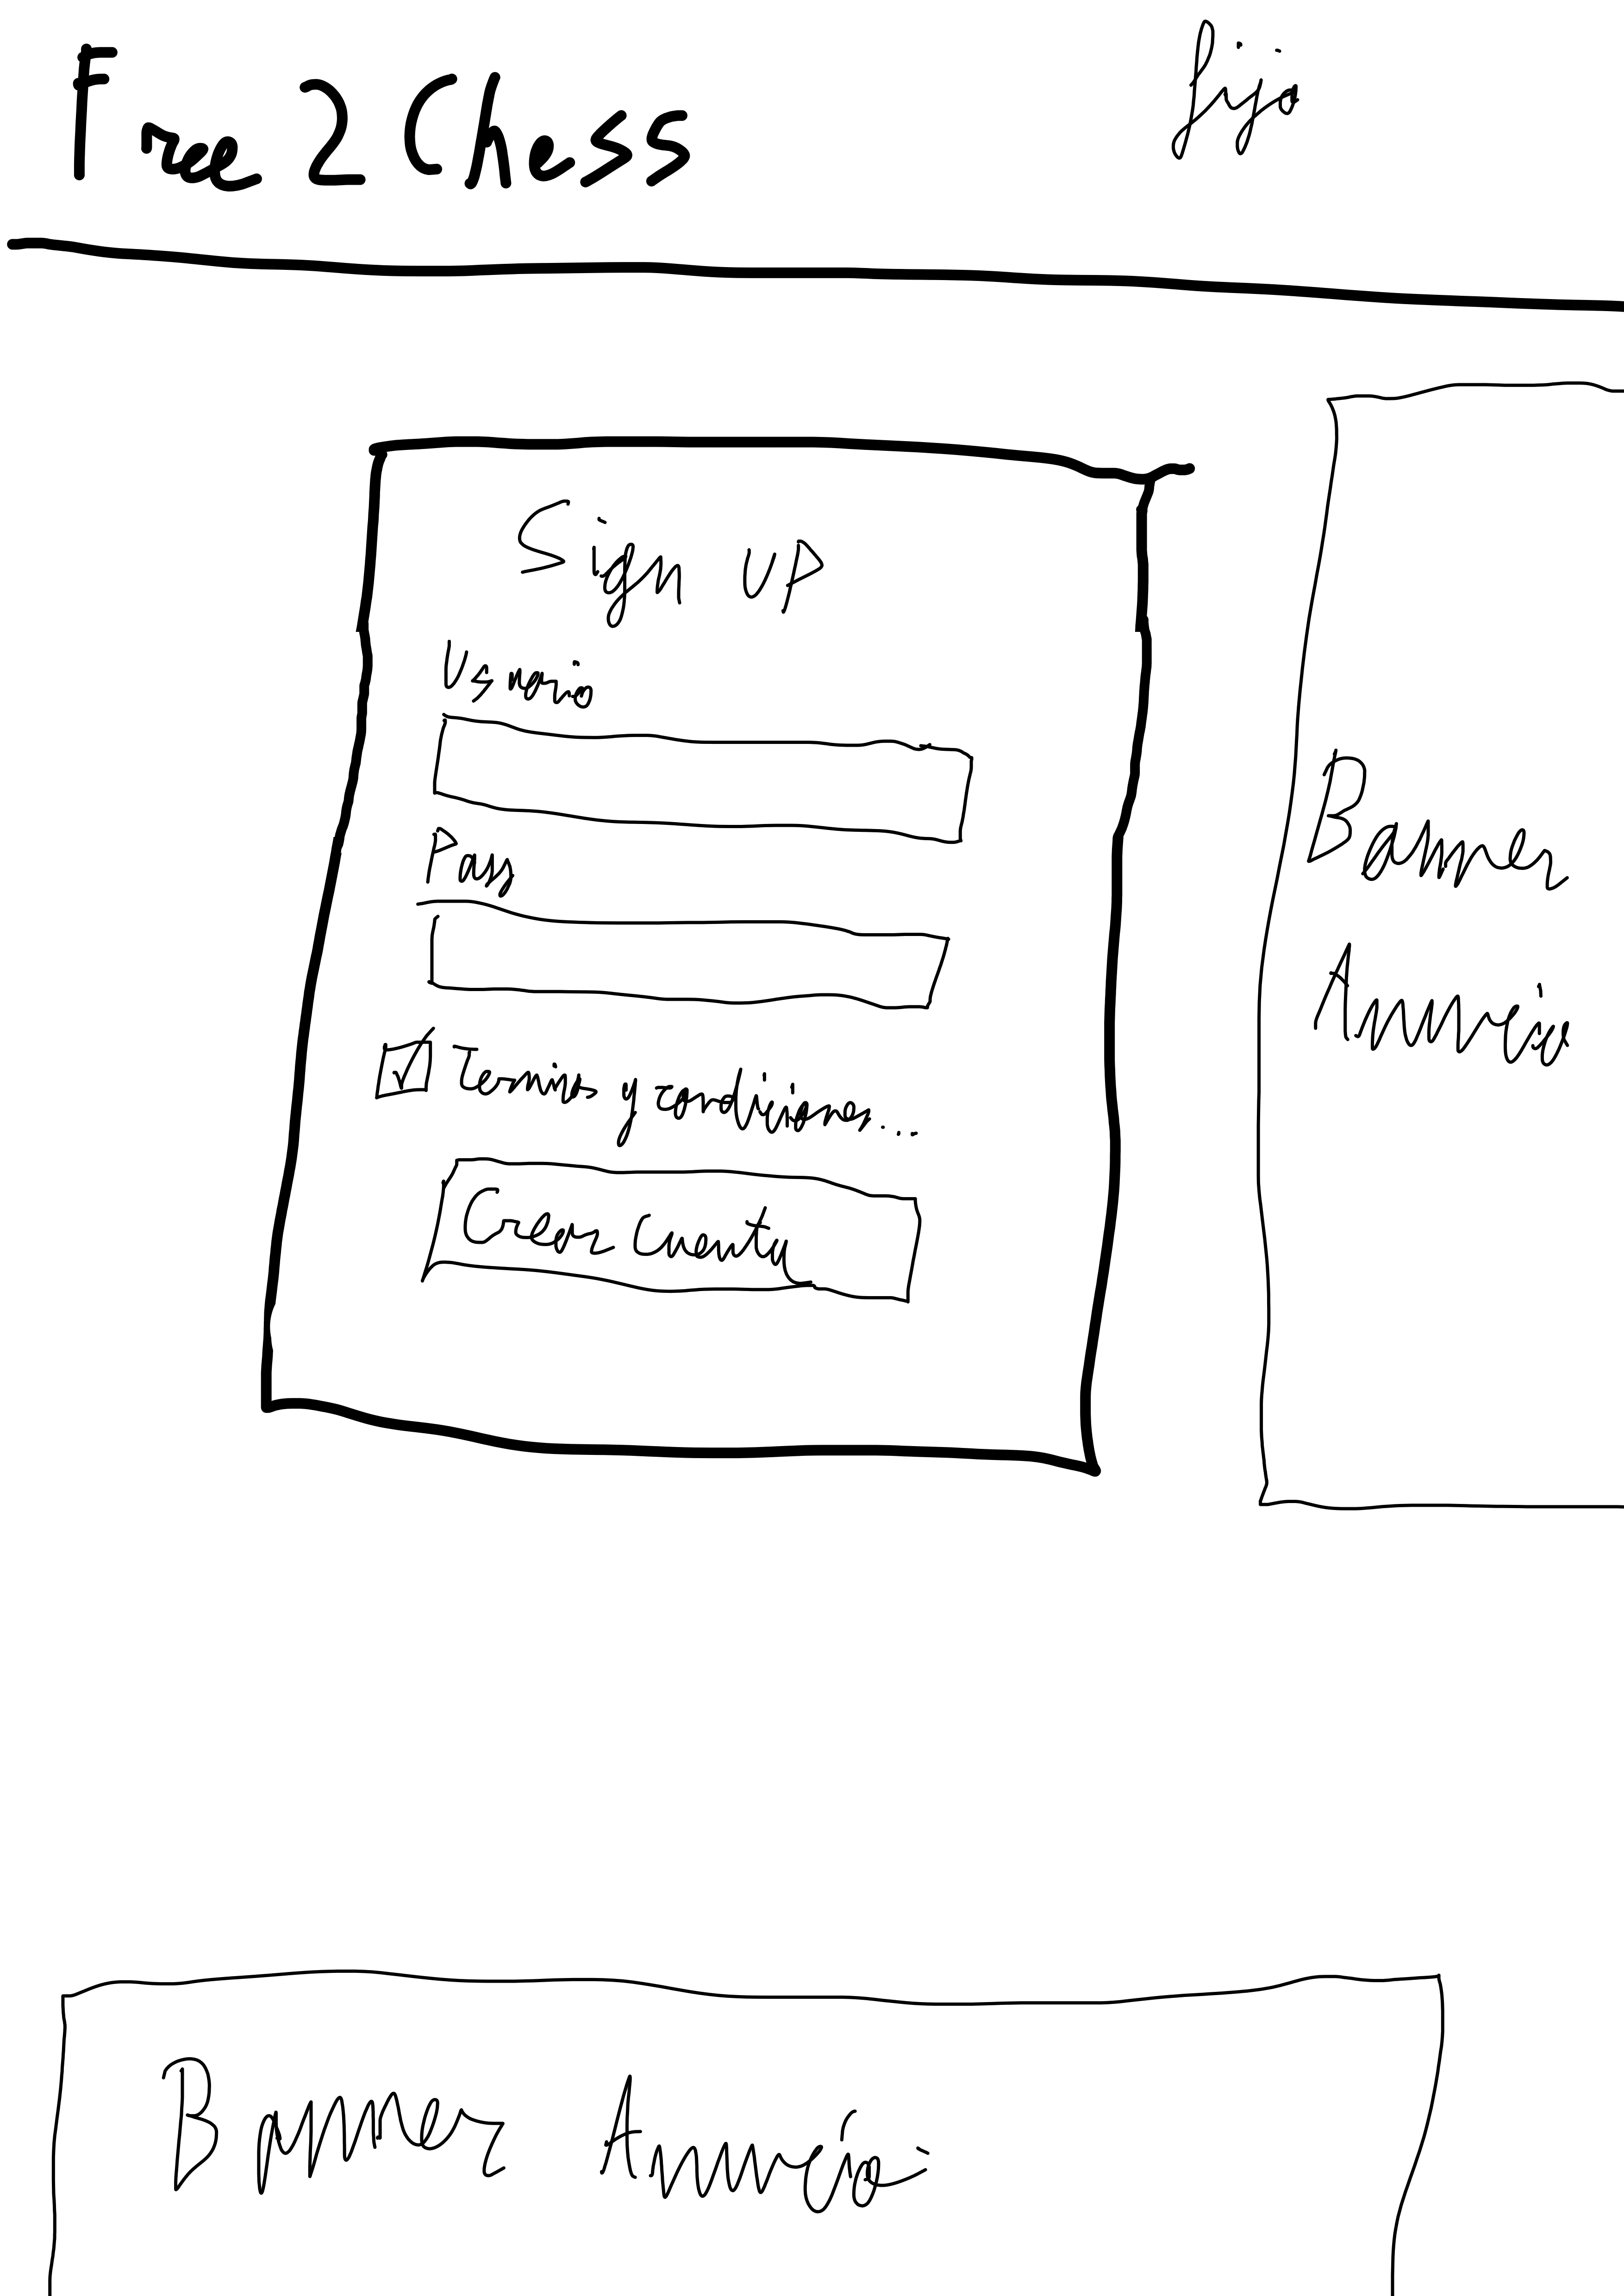 Free 2 Chess
fija
Sign UP
Usuario
Pass
Terminos y condiciones...
Crear Cuenta
Banner
Anuncio
Banner Anuncio